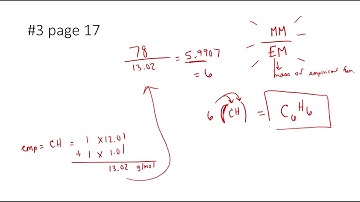 #3 page 17
78
13.02
= 5.9907
= 6
MM
EM
mass of empirical
6 (CH) = C₆H₆
emp = CH = 1 x 12.01
+ 1 x 1.01
13.02 g/mol